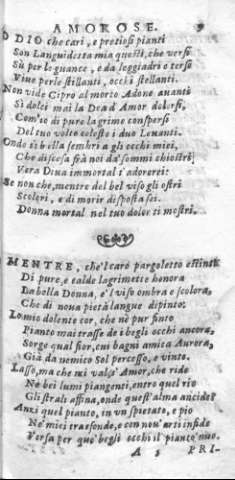 AMOROSE. 5
O DIO che cari, e pretiosi pianti
Son Languidetta mia questi, che versi
Sù per le guance, e da leggiadri e tersi
Vive perle stillanti, occhi stellanti.
Non vide Cipro al morto Adone avanti
Sì dolci mai la Dea d'Amor dolersi,
Com'io di pure lagrime conspersi
Del tuo volto celeste i duo Levanti.
Ond'o sì bella sembri a gli occhi miei,
Che discesa frà noi da' sommi chiostri,
Vera Diva immortal t'adorerei:
Se non che, mentre del bel viso gli ostri
Scolori, e di morir disposta sei,
Donna mortal nel tuo dolor ti mostri.
MENTRE, che'l caro pargoletto estinto
Di pure, e calde lagrimette honora
La bella Donna, e'l viso ombra e scolora,
Che di nova pietà langue dipinto;
Lo mio dolente cor, che nè pur finto
Pianto mai trasse de i begli occhi ancora,
Sorge qual fior, cui bagni amica Aurora,
Già da nemico Sol percosso, e vinto.
Lasso, ma che mi valse? Amor, che ride
Ne bei lumi piangenti, entro quel rio
Gli strali affina, onde quest'alma ancide:
Anzi quel pianto, in un spietato, e pio
Ne' miei trasfonde, e con nov' arti infide
Versa per que' begli occhi il pianto mio.
A 3 PRI-